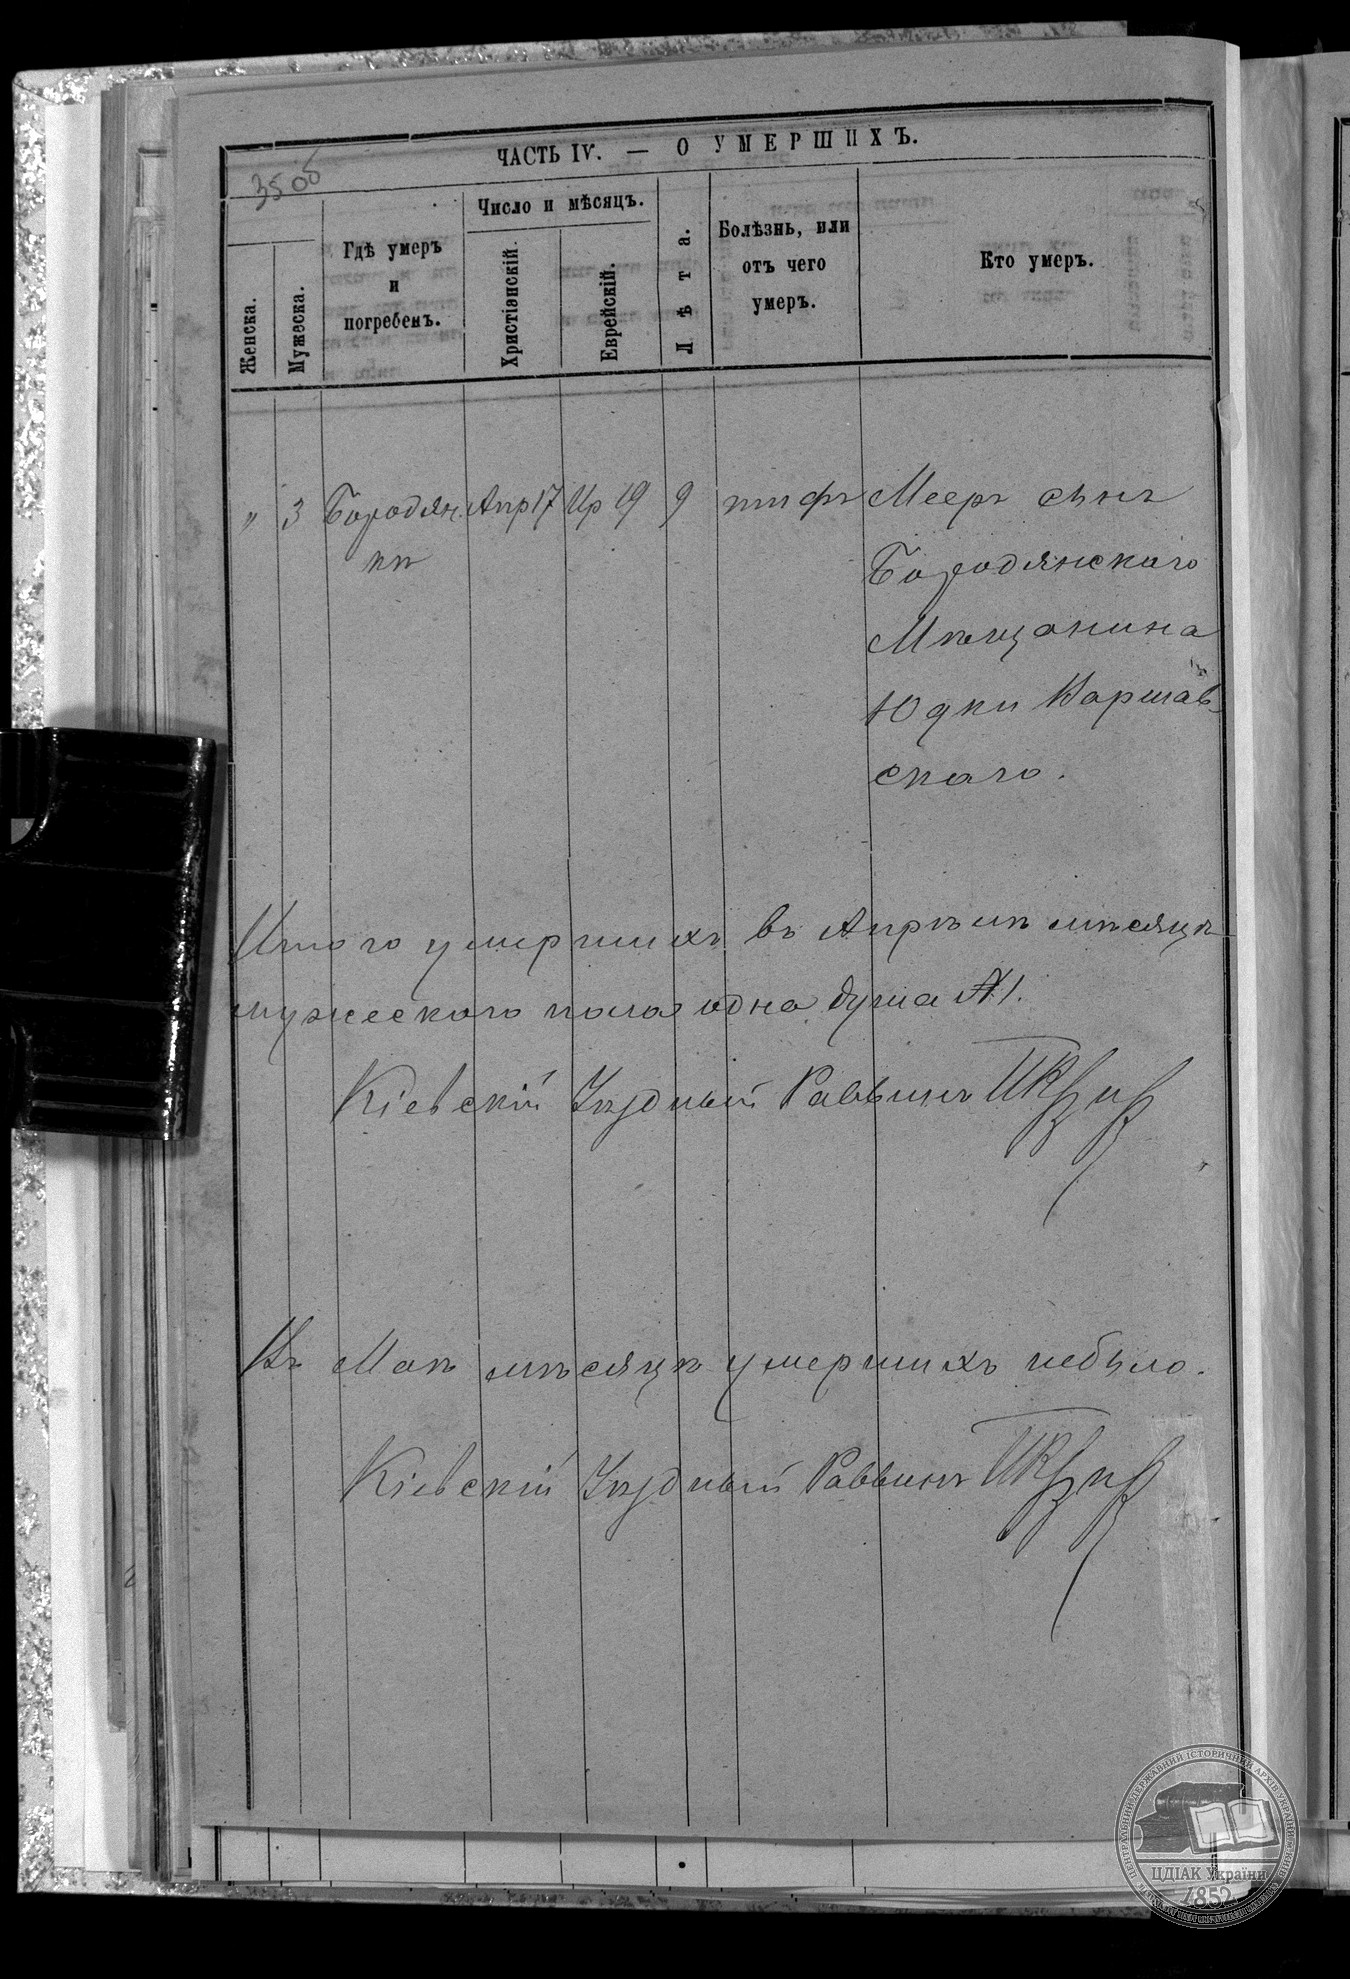 ЧАСТЬ IV. — О УМЕРШИХЪ.
350б
Женска.
Мужеска.
Гдѣ умеръ
и
погребенъ.
Число и мѣсяцъ.
Христіанскій.
Еврейскій.
Лѣта.
Болѣзнь, или
отъ чего
умеръ.
Кто умеръ.
" 3 Бородян Апр 17 Ир 19 9 тифъ Мееръ сынъ
кѣ Бородянскаго
Мѣщанина
Юдки Варшав-
скаго.
Итого умершихъ въ Апрѣлѣ мѣсяцѣ
мужескаго пола одна душа № 1.
Кіевскій Уѣздный Раввинъ
Въ Маѣ мѣсяцѣ умершихъ небыло.
Кіевскій Уѣздный Раввинъ
ЦЕНТРАЛЬНИЙ ДЕРЖАВНИЙ ІСТОРИЧНИЙ АРХІВ УКРАЇНИ
ЦДІАК України
1852